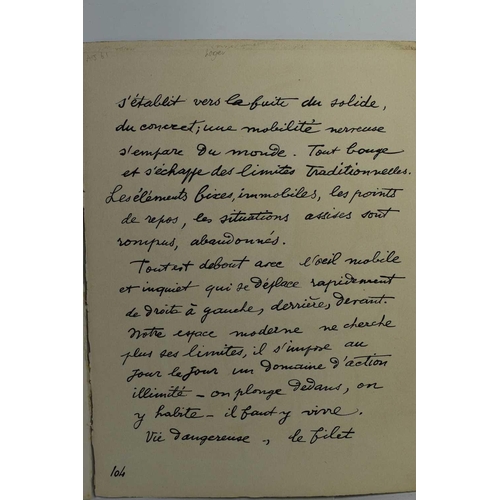 s'établit vers la fuite du solide,
du concret; une mobilité nerveuse
s'empare du monde. Tout bouge
et s'échappe des limites traditionnelles.
Les éléments fixes, immobiles, les points
de repos, les situations assises sont
rompus, abandonnés.
Tout est debout avec l'oeil mobile
et inquiet qui se déplace rapidement
de droite à gauche, derrière, devant.
Notre espace moderne ne cherche
plus ses limites, il s'impose au
jour le jour un domaine d'action
illimité - on plonge dedans, on
y habite - il faut y vivre.
Vie dangereuse, le filet
104